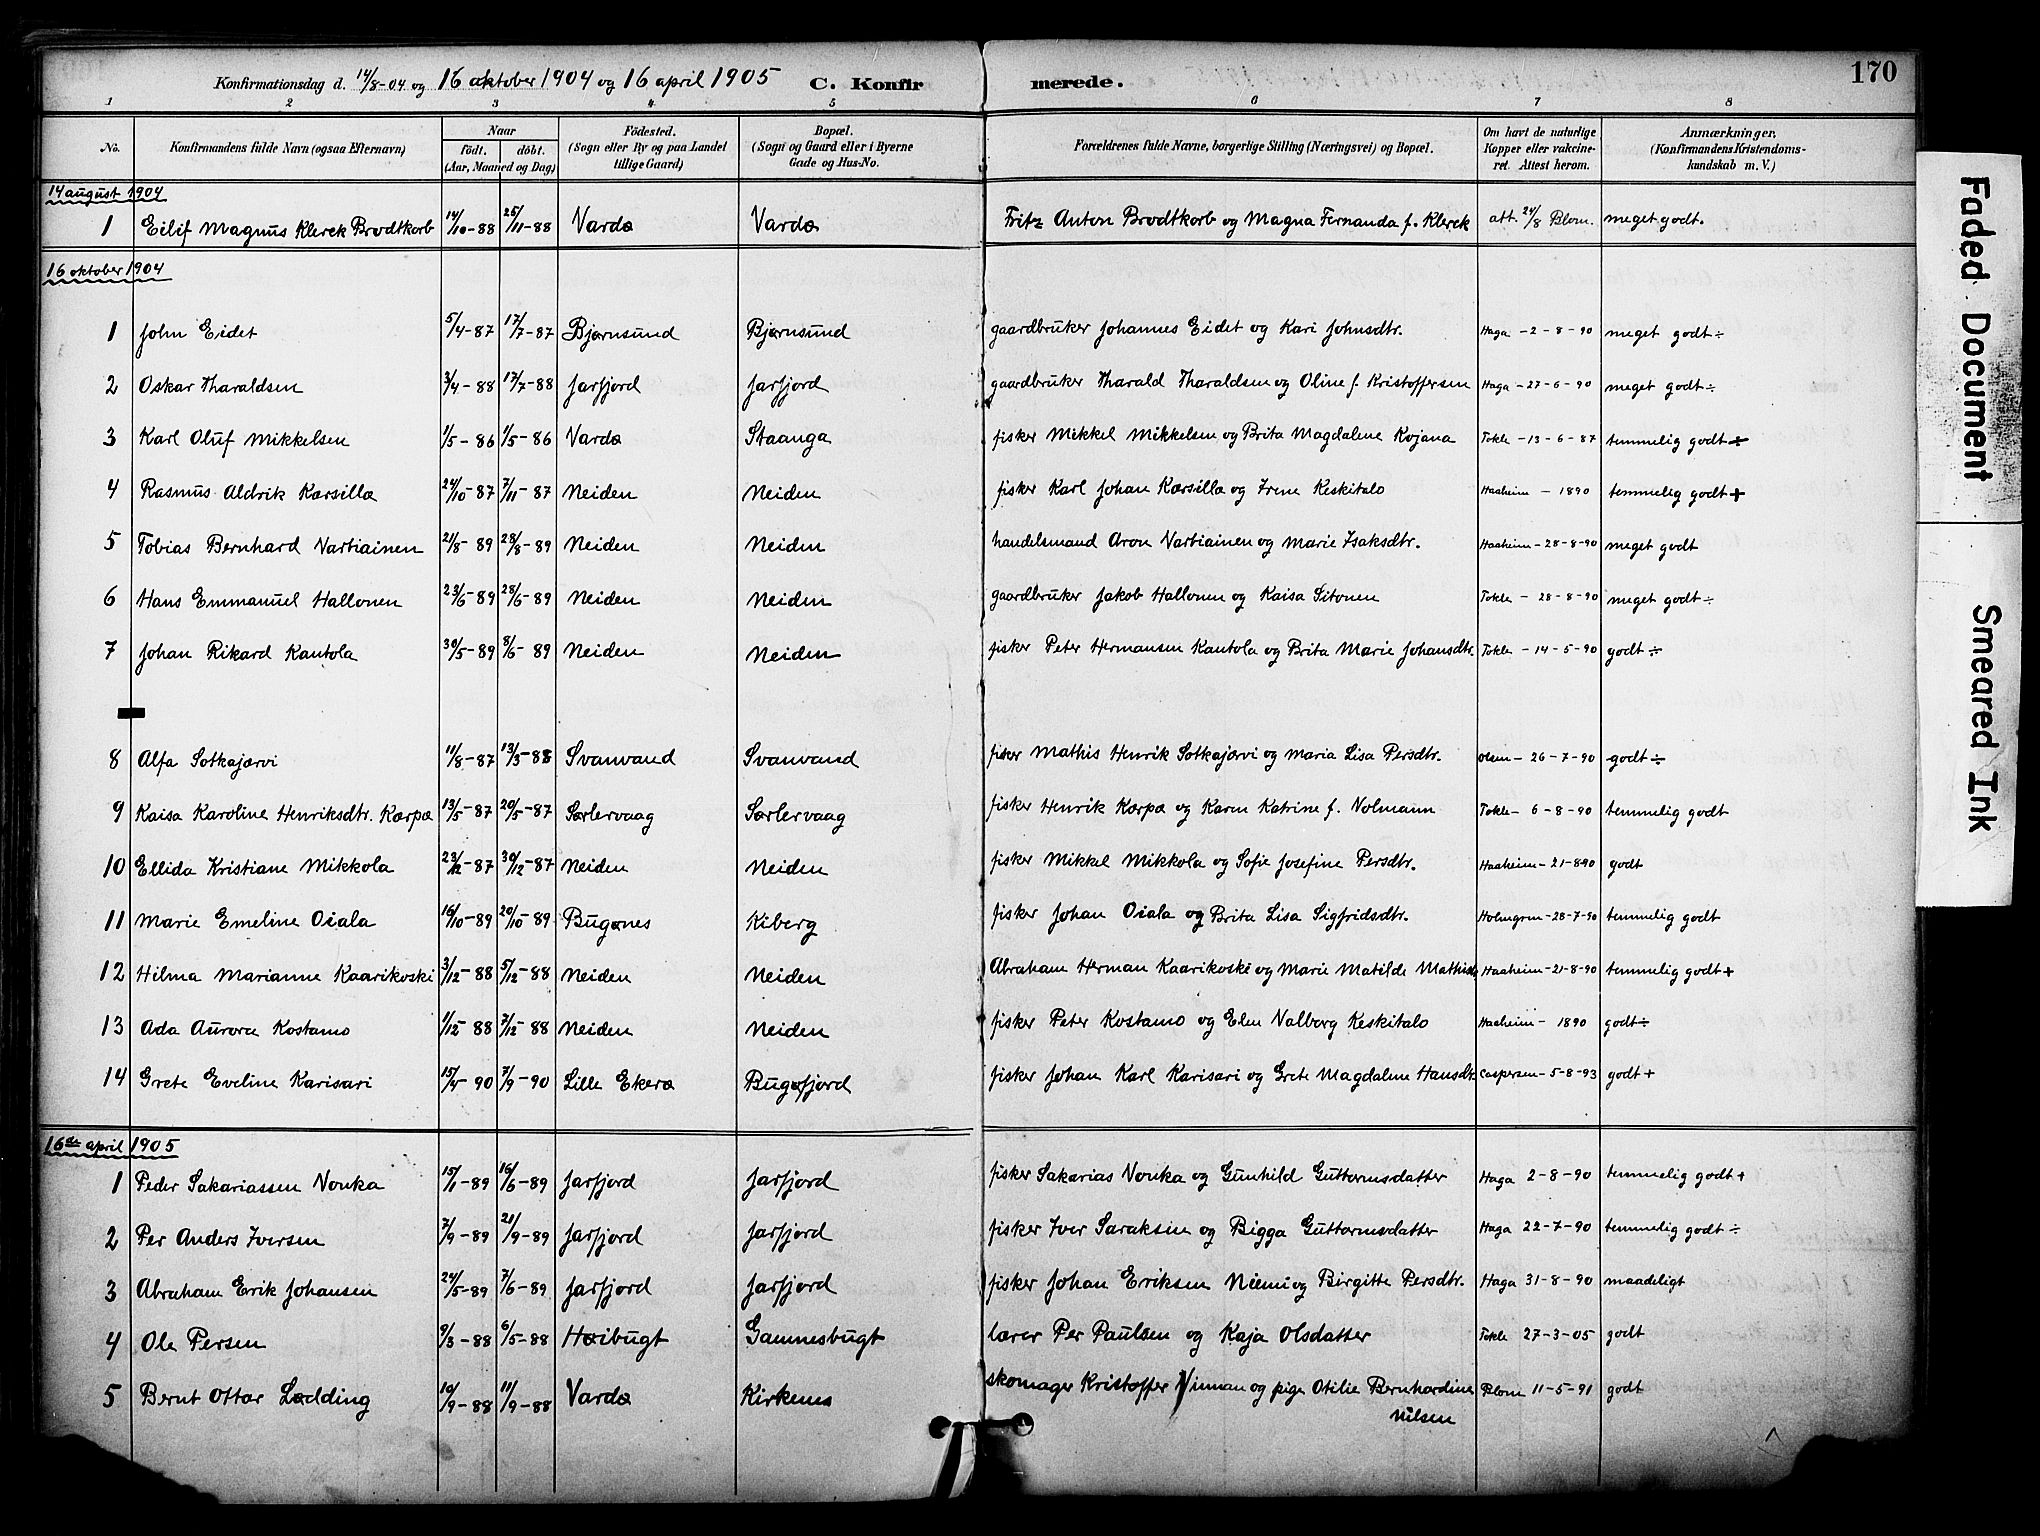 Konfirmationsdag d. 14/8-04 og 16 oktober 1904 og 16 april 1905 C. Konfirmerede. 170
1 2 3 4 5 6 7 8
No. Konfirmandens fulde Navn (ogsaa Efternavn) Naar födt. döbt. (Aar, Maaned og Dag) Födested. (Sogn eller By og paa Landet tillige Gaard) Bopæl. (Sogn og Gaard eller i Byerne Gade og Hus-No. Forældrenes fulde Navne, borgerlige Stilling (Næringsvei) og Bopæl. Om havt de naturlige Kopper eller vakcineret. Attest herom. Anmærkninger, (Konfirmandens Kristendomskundskab m. V.)
14 august 1904
1 Eilif Magnus Klerck Brodtkorb 14/10-88 25/11-88 Vardø Vardø Fritz Anton Brodtkorb og Magna Fernanda f. Klerck att. 24/8 Blom. meget godt.
16 oktober 1904
1 John Eidet 5/4-87 17/7-87 Bjørnsund Bjørnsund gaardbruker Johannes Eidet og Kari Johnsdtr. Haga - 2-8-90 meget godt ÷
2 Oskar Tharaldsen 3/4-88 17/7-88 Jarfjord Jarfjord gaardbruker Tharald Tharaldsen og Oline f. Kristoffersen Haga - 27-6-90 meget godt ÷
3 Karl Oluf Mikkelsen 1/5-86 1/5-86 Vardø Staanga fisker Mikkel Mikkelsen og Brita Magdalene Kojana Tokle - 13-6-87 temmelig godt ÷
4 Rasmus Aldrik Karsilla 24/10-87 7/11-87 Neiden Neiden fisker Karl Johan Karsilla og Irene Keskitalo Haaheim - 1890 temmelig godt +
5 Tobias Bernhard Vartiainen 21/8-89 28/8-89 Neiden Neiden handelsmand Aron Vartiainen og Marie Isaksdtr. Haaheim - 28-8-90 meget godt
6 Hans Emmanuel Hallonen 23/6-89 28/6-89 Neiden Neiden gaardbruker Jakob Hallonen og Kaisa Sitonen Tokle - 28-8-90 meget godt ÷
7 Johan Rikard Kantola 30/5-89 8/6-89 Neiden Neiden fisker Peter Hermansen Kantola og Brita Marie Johansdtr. Tokle - 14-5-90 godt ÷
8 Alfa Sotkajærvi 11/8-87 13/3-88 Svanvand Svanvand fisker Mathis Henrik Sotkajærvi og Maria Lisa Persdtr. Olsen - 26-7-90 godt ÷
9 Kaisa Karoline Henriksdtr. Karpa 13/5-87 20/5-87 Sørlervaag Sørlervaag fisker Henrik Karpa og Karen Katrine f. Nolmann Tokle - 6-8-90 temmelig godt
10 Ellida Kristiane Mikkola 23/12-87 30/12-87 Neiden Neiden fisker Mikkel Mikkola og Sofie Josefine Persdtr. Haaheim - 21-8-90 godt
11 Marie Emeline Oiala 16/10-89 20/10-89 Bugønes Kiberg fisker Johan Oiala og Brita Lisa Sigfridsdtr. Holmgren - 28-7-90 temmelig godt
12 Hilma Marianne Kaarikoski 3/12-88 5/12-88 Neiden Neiden Abraham Herman Kaarikoski og Marie Matilde Mathisd. Haaheim - 21-8-90 temmelig godt +
13 Ada Aurora Kostamo 1/12-88 7/12-88 Neiden Neiden fisker Peter Kostamo og Elen Valborg Keskitalo Haaheim - 1890 godt ÷
14 Grete Eveline Karisari 15/4-90 7/9-90 Lille Ekerø Bugøfjord fisker Johan Karl Karisari og Grete Magdalene Hansdtr. Caspersen - 5-8-93 godt +
16de april 1905
1 Peder Sakariassen Nouka 15/1-89 16/6-89 Jarfjord Jarfjord fisker Sakarias Nouka og Gunhild Guttormsdatter Haga 2-8-90 temmelig godt +
2 Per Anders Iversen 7/9-89 21/9-89 Jarfjord Jarfjord fisker Iver Saraksen og Bigga Guttormsdatter Haga 22-7-90 temmelig godt ÷
3 Abraham Erik Johansen 24/5-89 7/6-89 Jarfjord Jarfjord fisker Johan Eriksen Niemi og Birgitte Persdtr. Haga 31-8-90 maadeligt
4 Ole Persen 9/3-88 6/5-88 Høibugt Gamnesbugt lærer Per Paulsen og Kaja Olsdatter Tokle 27-3-05 godt
5 Bernt Ottar Lødding 10/9-88 11/9-88 Vardø Kirkenes skomager Kristoffer Vinman og pige Otilie Bernhardine Blom 11-5-91 godt
Nilsen
Faded Document
Smeared Ink